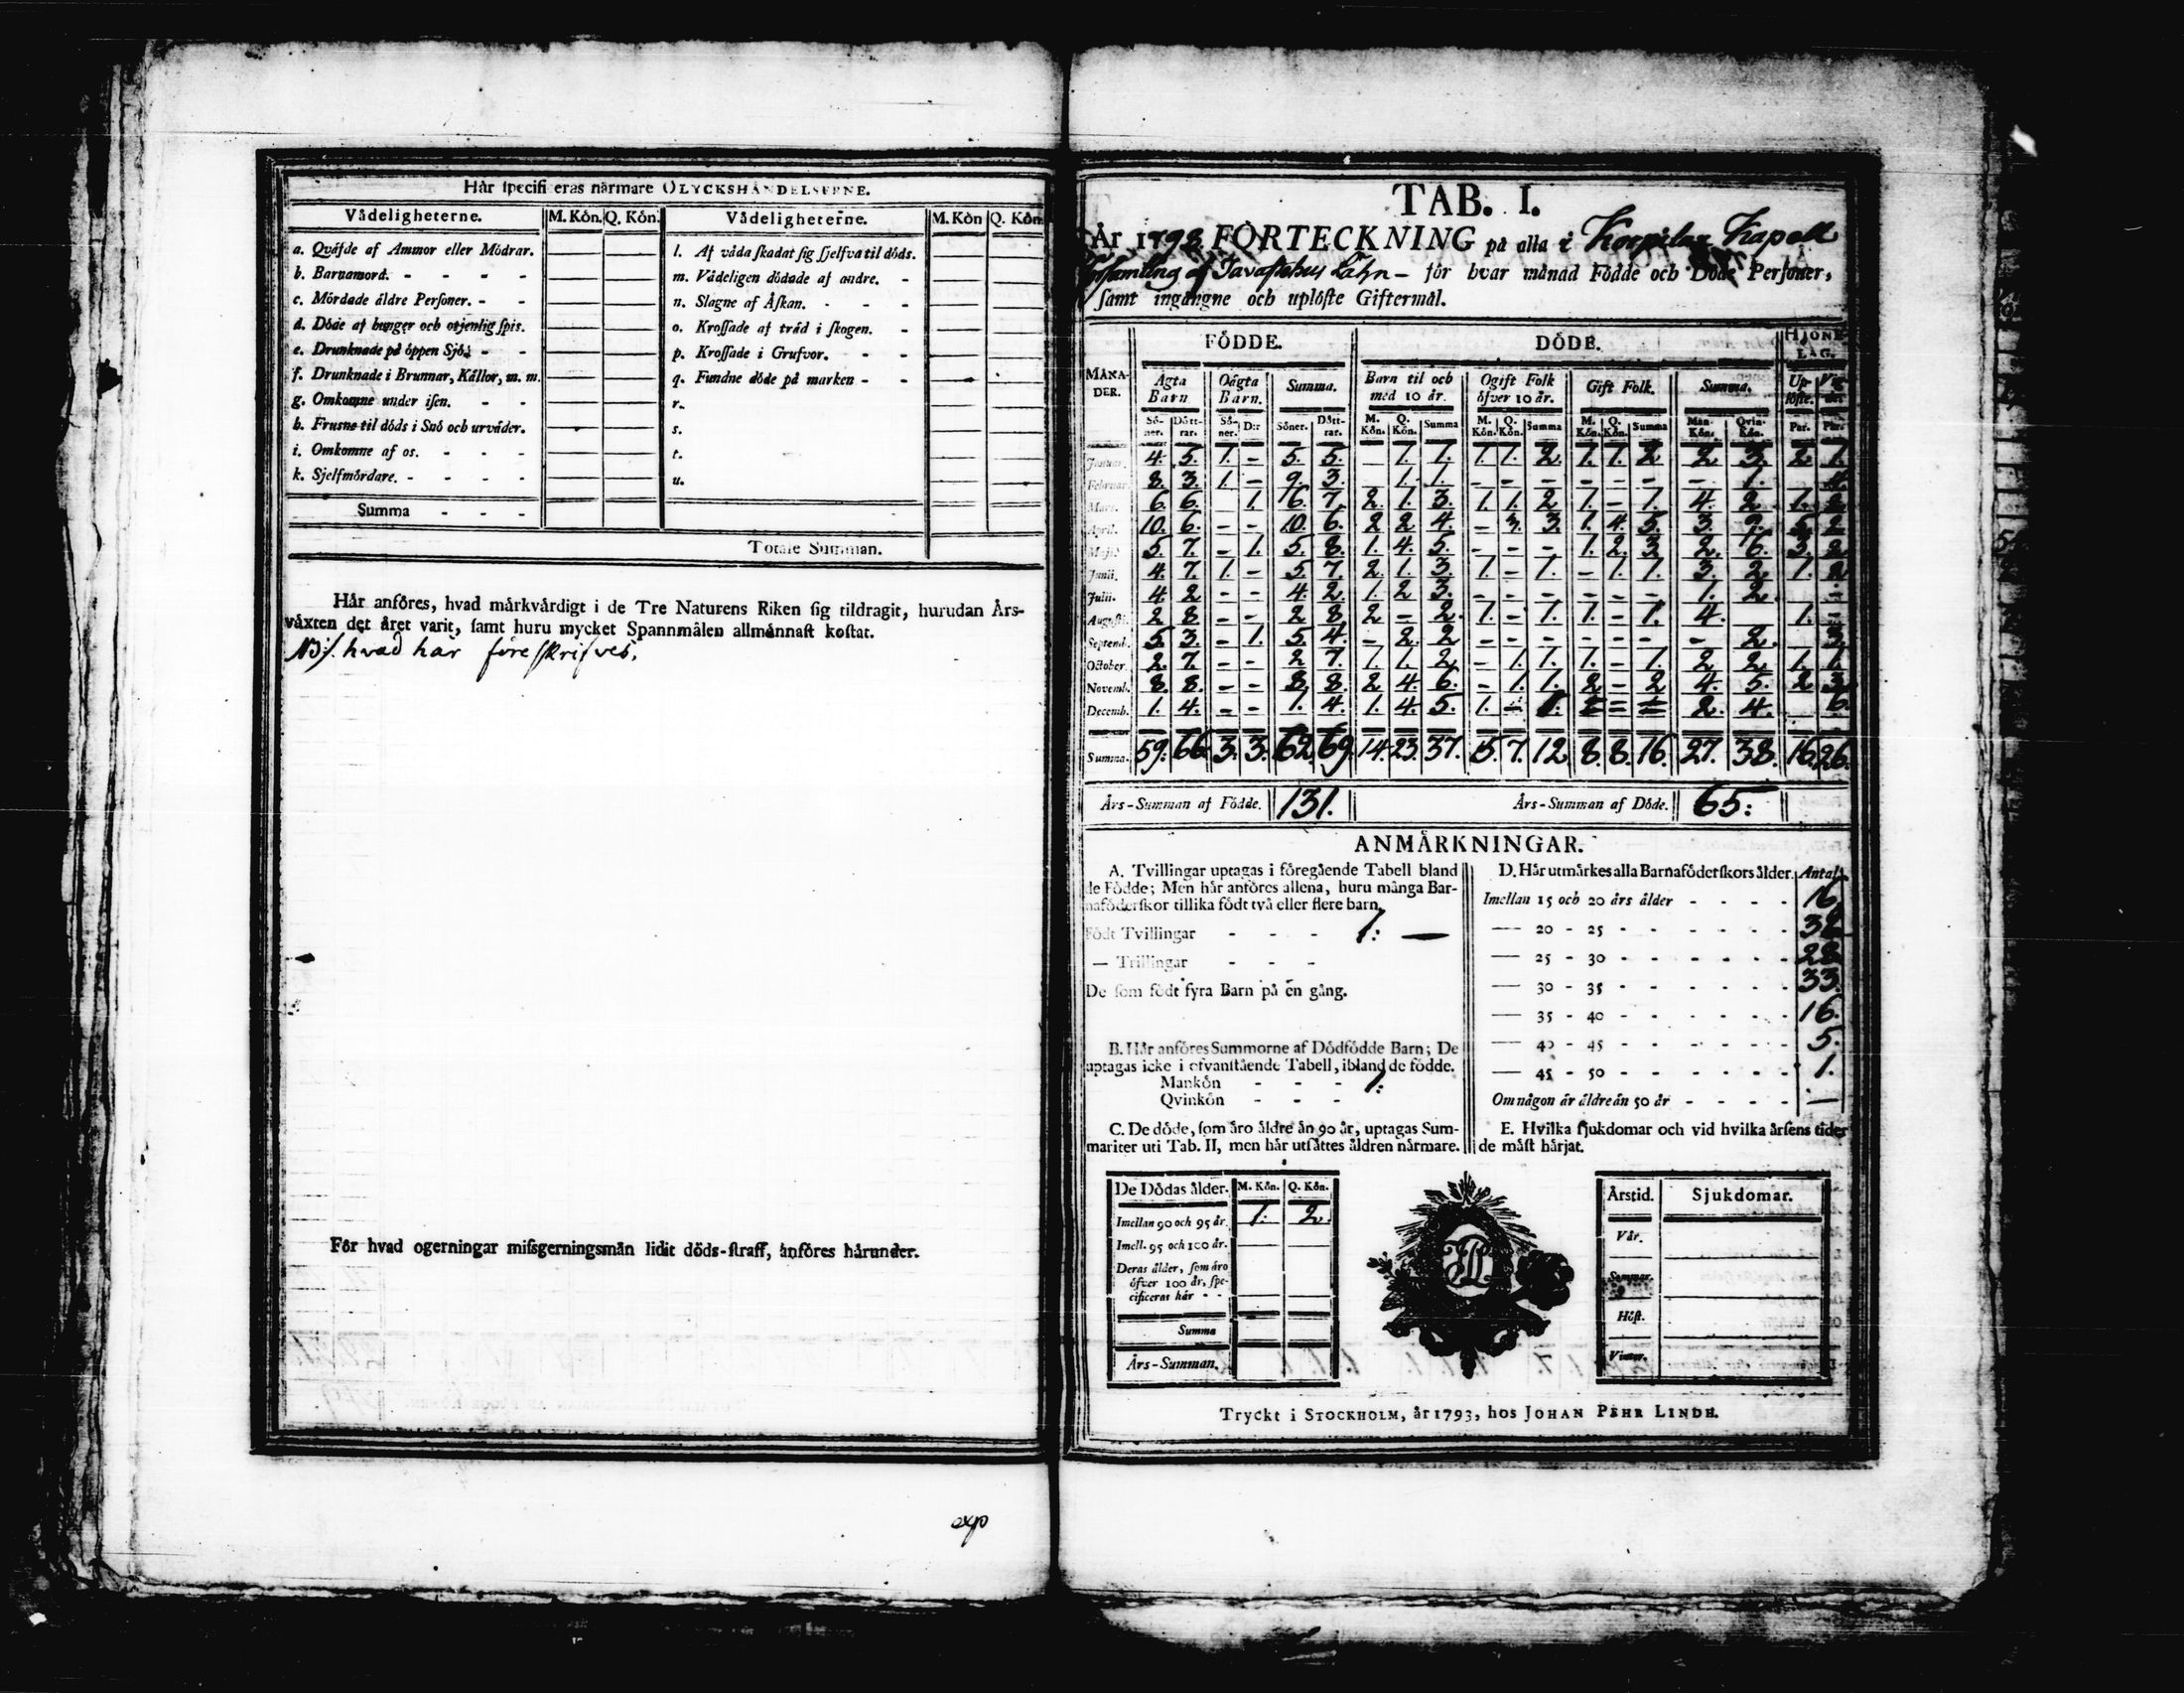 Hår specificeras nårmare OLYCKSHÅNDELSERNE.
Vådeligheterne. M. Kôn. Q. Kôn. Vådeligheterne. M. Kôn Q. Kôn.
a. Qvåfde af Ammor eller Môdrar. l. Af våda skadat sig sjelfva til dôds.
b. Barnamord. - - - - m. Vådeligen dôdade af andre. -
c. Môrdade åldre Personer. - - n. Slagne af Åskan. - - -
d. Dôde af hunger och otjenlig spis. o. Krossade af tråd i skogen. -
e. Drunknade på ôppen Sjô. - - p. Krossade i Grufvor. - -
f. Drunknade i Brunnar, Kållor, m. m. q. Fundne dôde på marken - -
g. Omkomne under isen. - - r.
h. Frusne til dôds i Snô och urvåder. s.
i. Omkomne af os. - - - t.
k. Sjelfmôrdare. - - - - u.
Summa - - -
Totale Summan.
Hår anfôres, hvad mårkvårdigt i de Tre Naturens Riken sig tildragit, hurudan Års-
våxten det året varit, samt huru mycket Spannmålen allmånnast kostat.
hvad har
Fôr hvad ogerningar missgerningsmån lidit dôds-straff, anfôres hårunder.
exp
TAB. I.
År 1798 FÔRTECKNING på alla i Korpilax Kapell
Församling af Tavastehus Låhn - fôr hvar månad Fôdde och Dôde Personer,
samt ingångne och uplôste Giftermål.
FÔDDE. DÔDE. HJONE-LAG.
MÅNA-DER. Ågta Barn Oågta Barn. Summa. Barn til och med 10 år. Ogift Folk ôfver 10 år. Gift Folk. Summa. Up-lôste. Vig-de
Sô-ner. Dôtt-rar. Sô-ner. D:r Sôner. Dôtt-rar. M. Kôn. Q. Kôn. Summa M. Kôn. Q. Kôn. Summa M. Kôn. Q. Kôn. Summa Man-Kôn. Qvin-Kôn. Par. Par.
Januar. 4. 5. 1. - 5. 5. 1. 1. 1. 1. 2. 1. 1. 2 2. 3. 2 1.
Februar. 8. 3. 1. - 9. 3. 1. 1. - - - - - - - 1.
Mars. 6. 6. 1. 6. 7. 2. 1. 3. 1. 1. 2 1. - 1. 4. 2. 1. 2.
April. 10. 6. - - 10. 6. 2 2 4. - 3. 3. 1. 4. 5. 3. 9. 5. 2
Maji. 5. 7. - 1. 5. 8. 1. 4. 5. - - - 1. 2. 3 2. 6. 3. 2
Junii. 4. 7. 1. - 5. 7. 2. 1. 3. 1. - 1. - 1. 1. 3. 2. 1. 2
Julii. 4. 2 - - 4. 2. 1. 2 3. - - - - - - 1. 2. -
August. 2 8. - - 2 8. 2 - 2. 1. - 1. 1. - 1. 4. 1. -
Septemb. 5. 3. - 1. 5. 4. - 2. 2 - - - - - - - 2. 3.
October. 2. 7. - - 2 7. 1. 1. 2. - 1. 1. 1. - 1. 2. 2. 1. 1.
Novemb. 8. 8. - - 8. 8. 2. 4. 6. - 1. 1. 2 - 2 4. 5. 2 3.
Decemb. 1. 4. - - 1. 4. 1. 4. 5. 1. - 2. 4. 6.
Summa. 59. 66 3. 3. 62. 69. 14. 23. 37. 5. 7. 12 8. 8. 16. 27. 38. 16. 26.
Års-Summan af Fôdde. 131. Års-Summan af Dôde. 65.
ANMÅRKNINGAR.
A. Tvillingar uptagas i fôregående Tabell bland
de Fôdde; Men hår anfôres allena, huru många Bar-
nafôderskor tillika fôdt två eller flere barn.
Fôdt Tvillingar - - - 1: —
— Trillingar - - -
De som fôdt fyra Barn på en gång.
B. Hår anfôres Summorne af Dôdfôdde Barn; De
uptagas icke i ofvanstående Tabell, ibland de fôdde.
Mankôn - - - 1.
Qvinkôn - - -
C. De dôde, som åro åldre ån 90 år, uptagas Sum-
mariter uti Tab. II, men hår utsåttes åldren nårmare.
D. Hår utmårkes alla Barnafôderskors ålder. Antal.
Imellan 15 och 20 års ålder - - - - 16.
— 20 - 25 - - - - - - 32
— 25 - 30 - - - - - - 28
— 30 - 35 - - - - - - 33.
— 35 - 40 - - - - - - 16.
— 40 - 45 - - - - - - 5.
— 45 - 50 - - - - - - 1.
Om någon år åldre ån 50 år - - - - —
E. Hvilka sjukdomar och vid hvilka årsens tider
de måst hårjat.
De Dôdas ålder. M. Kôn. Q. Kôn.
Imellan 90 och 95 år. 1. 2.
Imell. 95 och 100 år.
Deras ålder, som åro
ôfver 100 år, spe-
cificeras hår - -
Summa
Års-Summan.
Årstid. Sjukdomar.
Vår.
Sommar.
Hôst.
Vinter.
Tryckt i STOCKHOLM, år 1793, hos JOHAN PEHR LINDH.